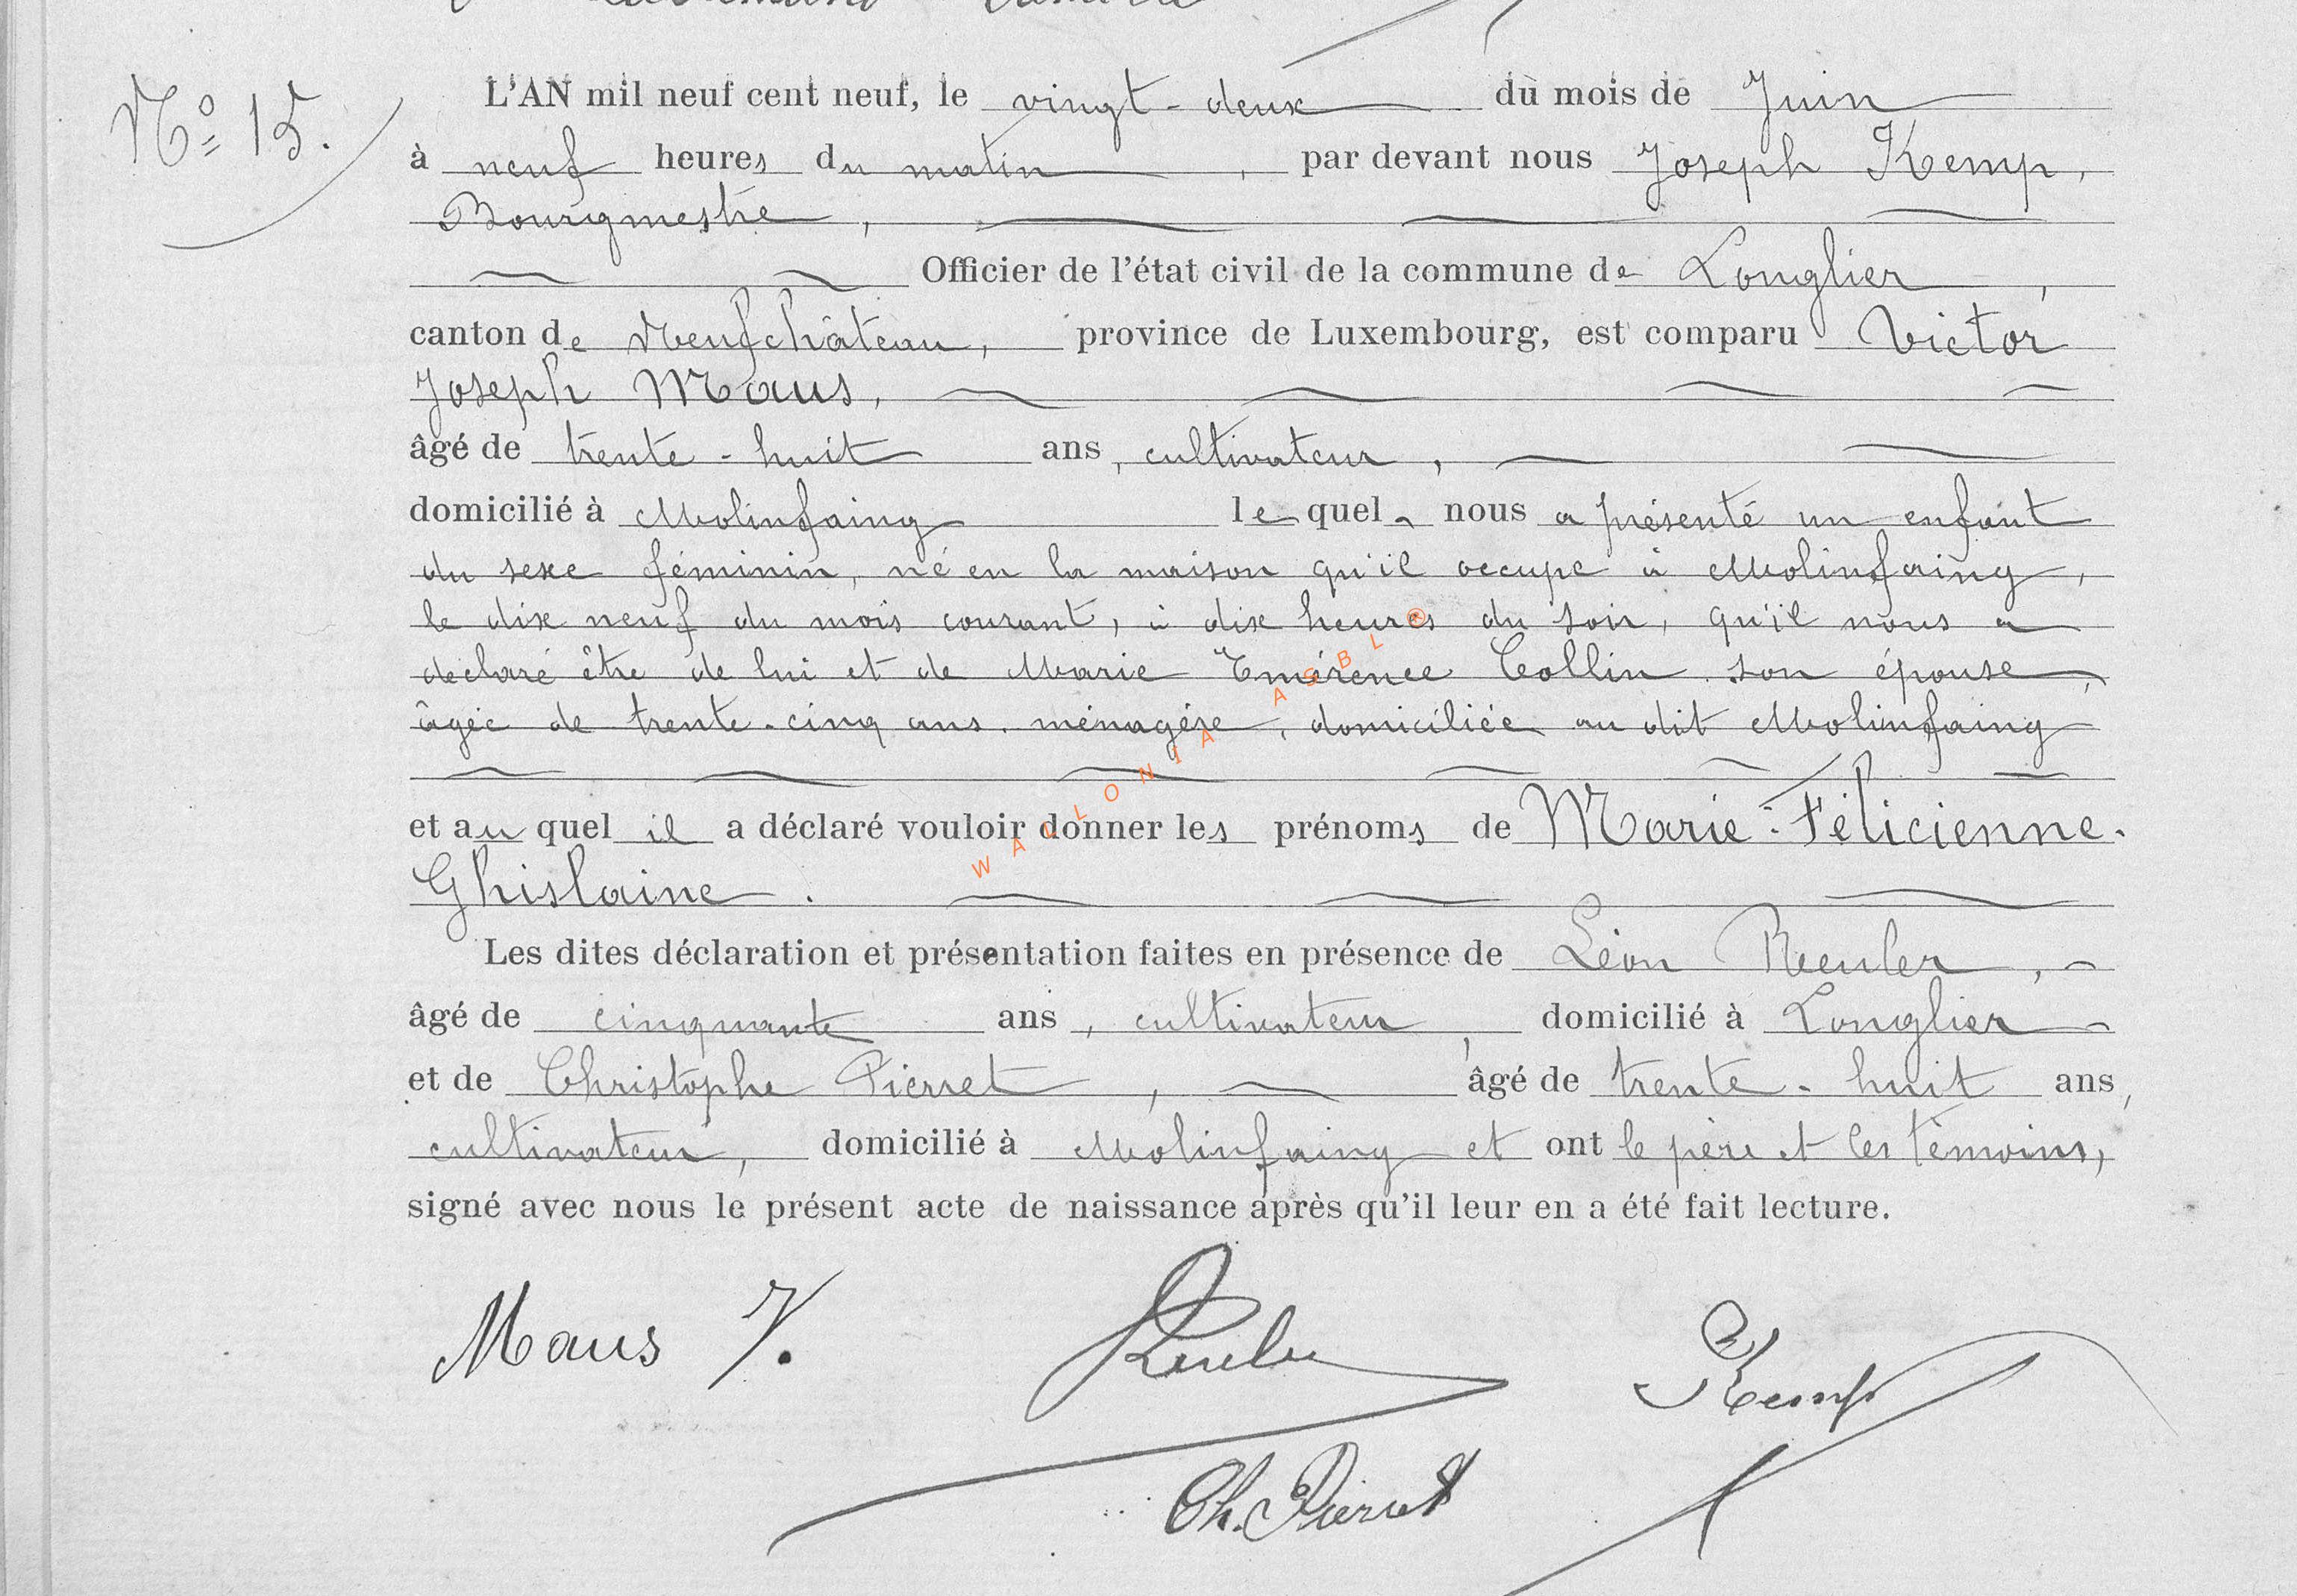 N° 15.
L'AN mil neuf cent neuf, le vingt-deux du mois de Juin
à neuf heures du matin, par devant nous Joseph Kemp,
Bourgmestre,
Officier de l'état civil de la commune de Longlier,
canton de Neufchâteau, province de Luxembourg, est comparu Victor
Joseph Maus,
âgé de trente-huit ans, cultivateur,
domicilié à Molinfaing lequel nous a présenté un enfant
du sexe féminin, né en la maison qu'il occupe à Molinfaing,
le dix neuf du mois courant, à dix heures du soir, qu'il nous a
declaré être de lui et de Marie Emérence Collin son épouse,
âgée de trente-cinq ans, ménagère, domiciliée au dit Molinfaing
et auquel il a déclaré vouloir donner les prénoms de Marie-Félicienne-
Ghislaine.
Les dites déclaration et présentation faites en présence de Léon Reuler,
âgé de cinquante ans, cultivateur, domicilié à Longlier
et de Christophe Pierret, âgé de trente-huit ans,
cultivateur, domicilié à Molinfaing et ont le père et les témoins,
signé avec nous le présent acte de naissance après qu'il leur en a été fait lecture.
Maus V. Reuler Kemp
Ch. Pierret
WALLONIA ASBL ®